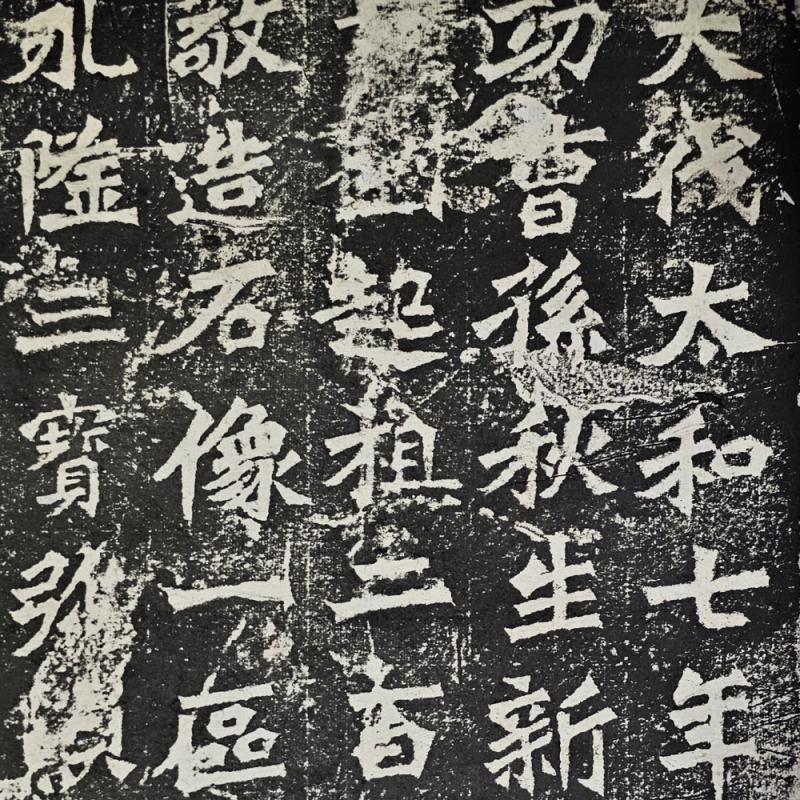 大伐太和七年
功曹孫秋生新
起祖二百
敬造石像一區
永隆三寶弥